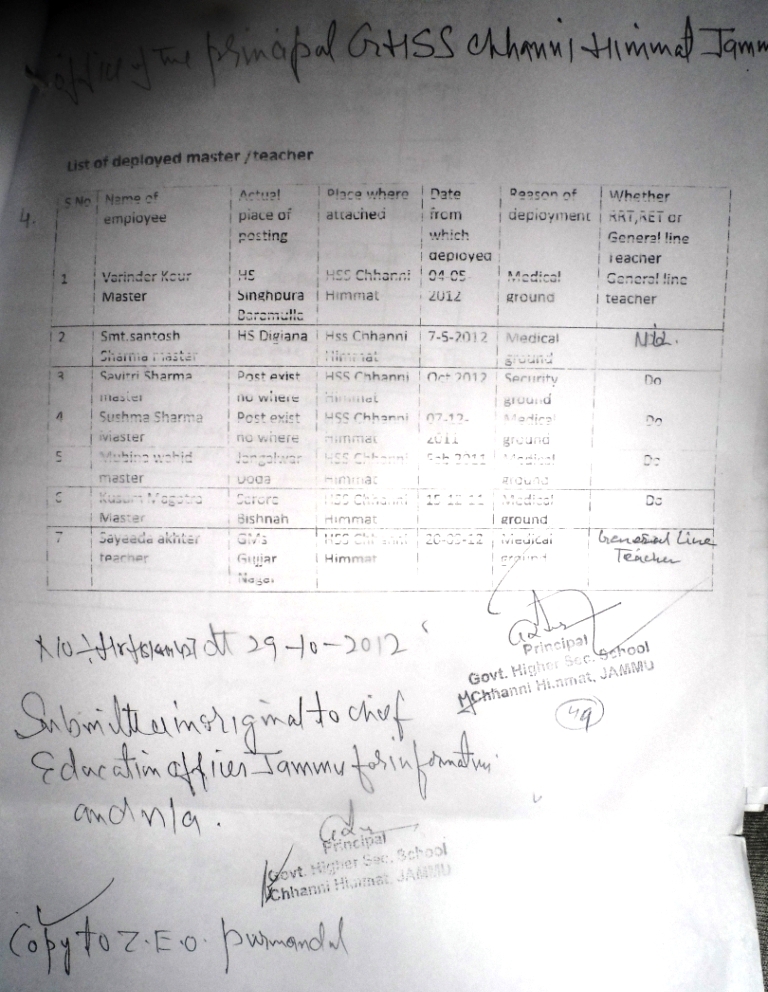 office of the principal GHSS Chhanni Himmat Jamm
List of deployed master /teacher
4.
S No Name of employee Actual place of posting Place where attached Date from which deployed Reason of deployment Whether RRT,RET or General line Teacher
1 Varinder Kour Master HS Singhpura Baramulla HSS Chhanni Himmat 04-05-2012 Medical ground General line teacher
2 Smt.santosh Sharma Master HS Digiana Hss Chhanni Himmat 7-5-2012 Medical ground
3 Savitri Sharma master Post exist no where HSS Chhanni Himmat Oct 2012 Security ground Do
4 Sushma Sharma Master Post exist no where HSS Chhanni Himmat 07-12-2011 Medical ground Do
5 Mubina wahid master Doda HSS Chhanni Himmat 2011 Medical ground Do
6 Kusum Magotra Master Bishnah HSS Chhanni Himmat 15-12-11 Medical ground Do
7 Sayeeda akhter teacher GMs Gujjar Nagar HSS Chhanni Himmat Medical ground General Line Teacher
dt 29-10-2012
Principal
Govt. Higher Sec. School
Chhanni Himmat, JAMMU
49
Submitted in original to chief
Education officer Jammu for information
and n/a.
Principal
Govt. Higher Sec. School
Chhanni Himmat, JAMMU
Copy to Z.E.O. purmandal